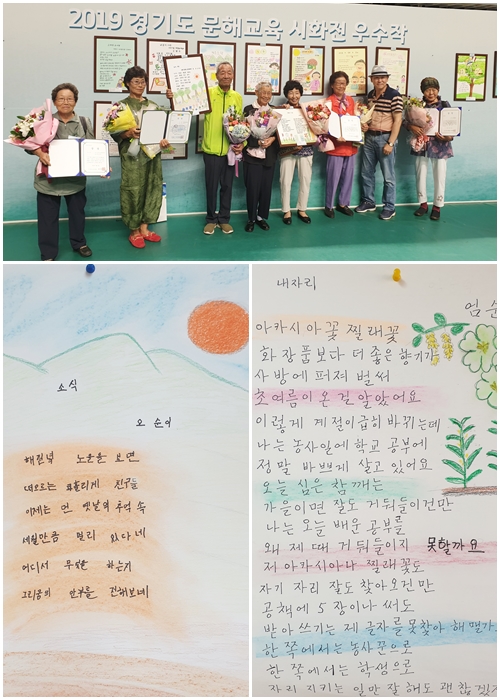 2019 경기도 문해교육 시화전 우수작
소식
오 순이
해질녘 노을을 보면
떠오르는 친구들
이제는 먼 옛날의 추억 속
세월만큼 멀리 와 있네
어디서 무엇을 하는지
그리움의 안부를 전해보네
내자리
엄 순
아카시아꽃 찔래꽃
화장품보다 더 좋은 향기가
사방에 퍼져 벌써
초여름이 온 걸 알았어요
이렇게 계절이 급히 바뀌는데
나는 농사일에 학교 공부에
정말 바쁘게 살고 있어요
오늘 심은 참깨는
가을이면 잘도 거둬들이건만
나는 오늘 배운 공부를
왜 제 때 거둬들이지 못할까요
저 아카시아나 찔래꽃도
자기 자리 잘도 찾아오건만
공책에 5장이나 써도
받아쓰기는 제 글자를 못찾아 헤매
한 쪽에서는 농사꾼으로
한 쪽에서는 학생으로
자리 지키는 일만 잘 해도 괜찮